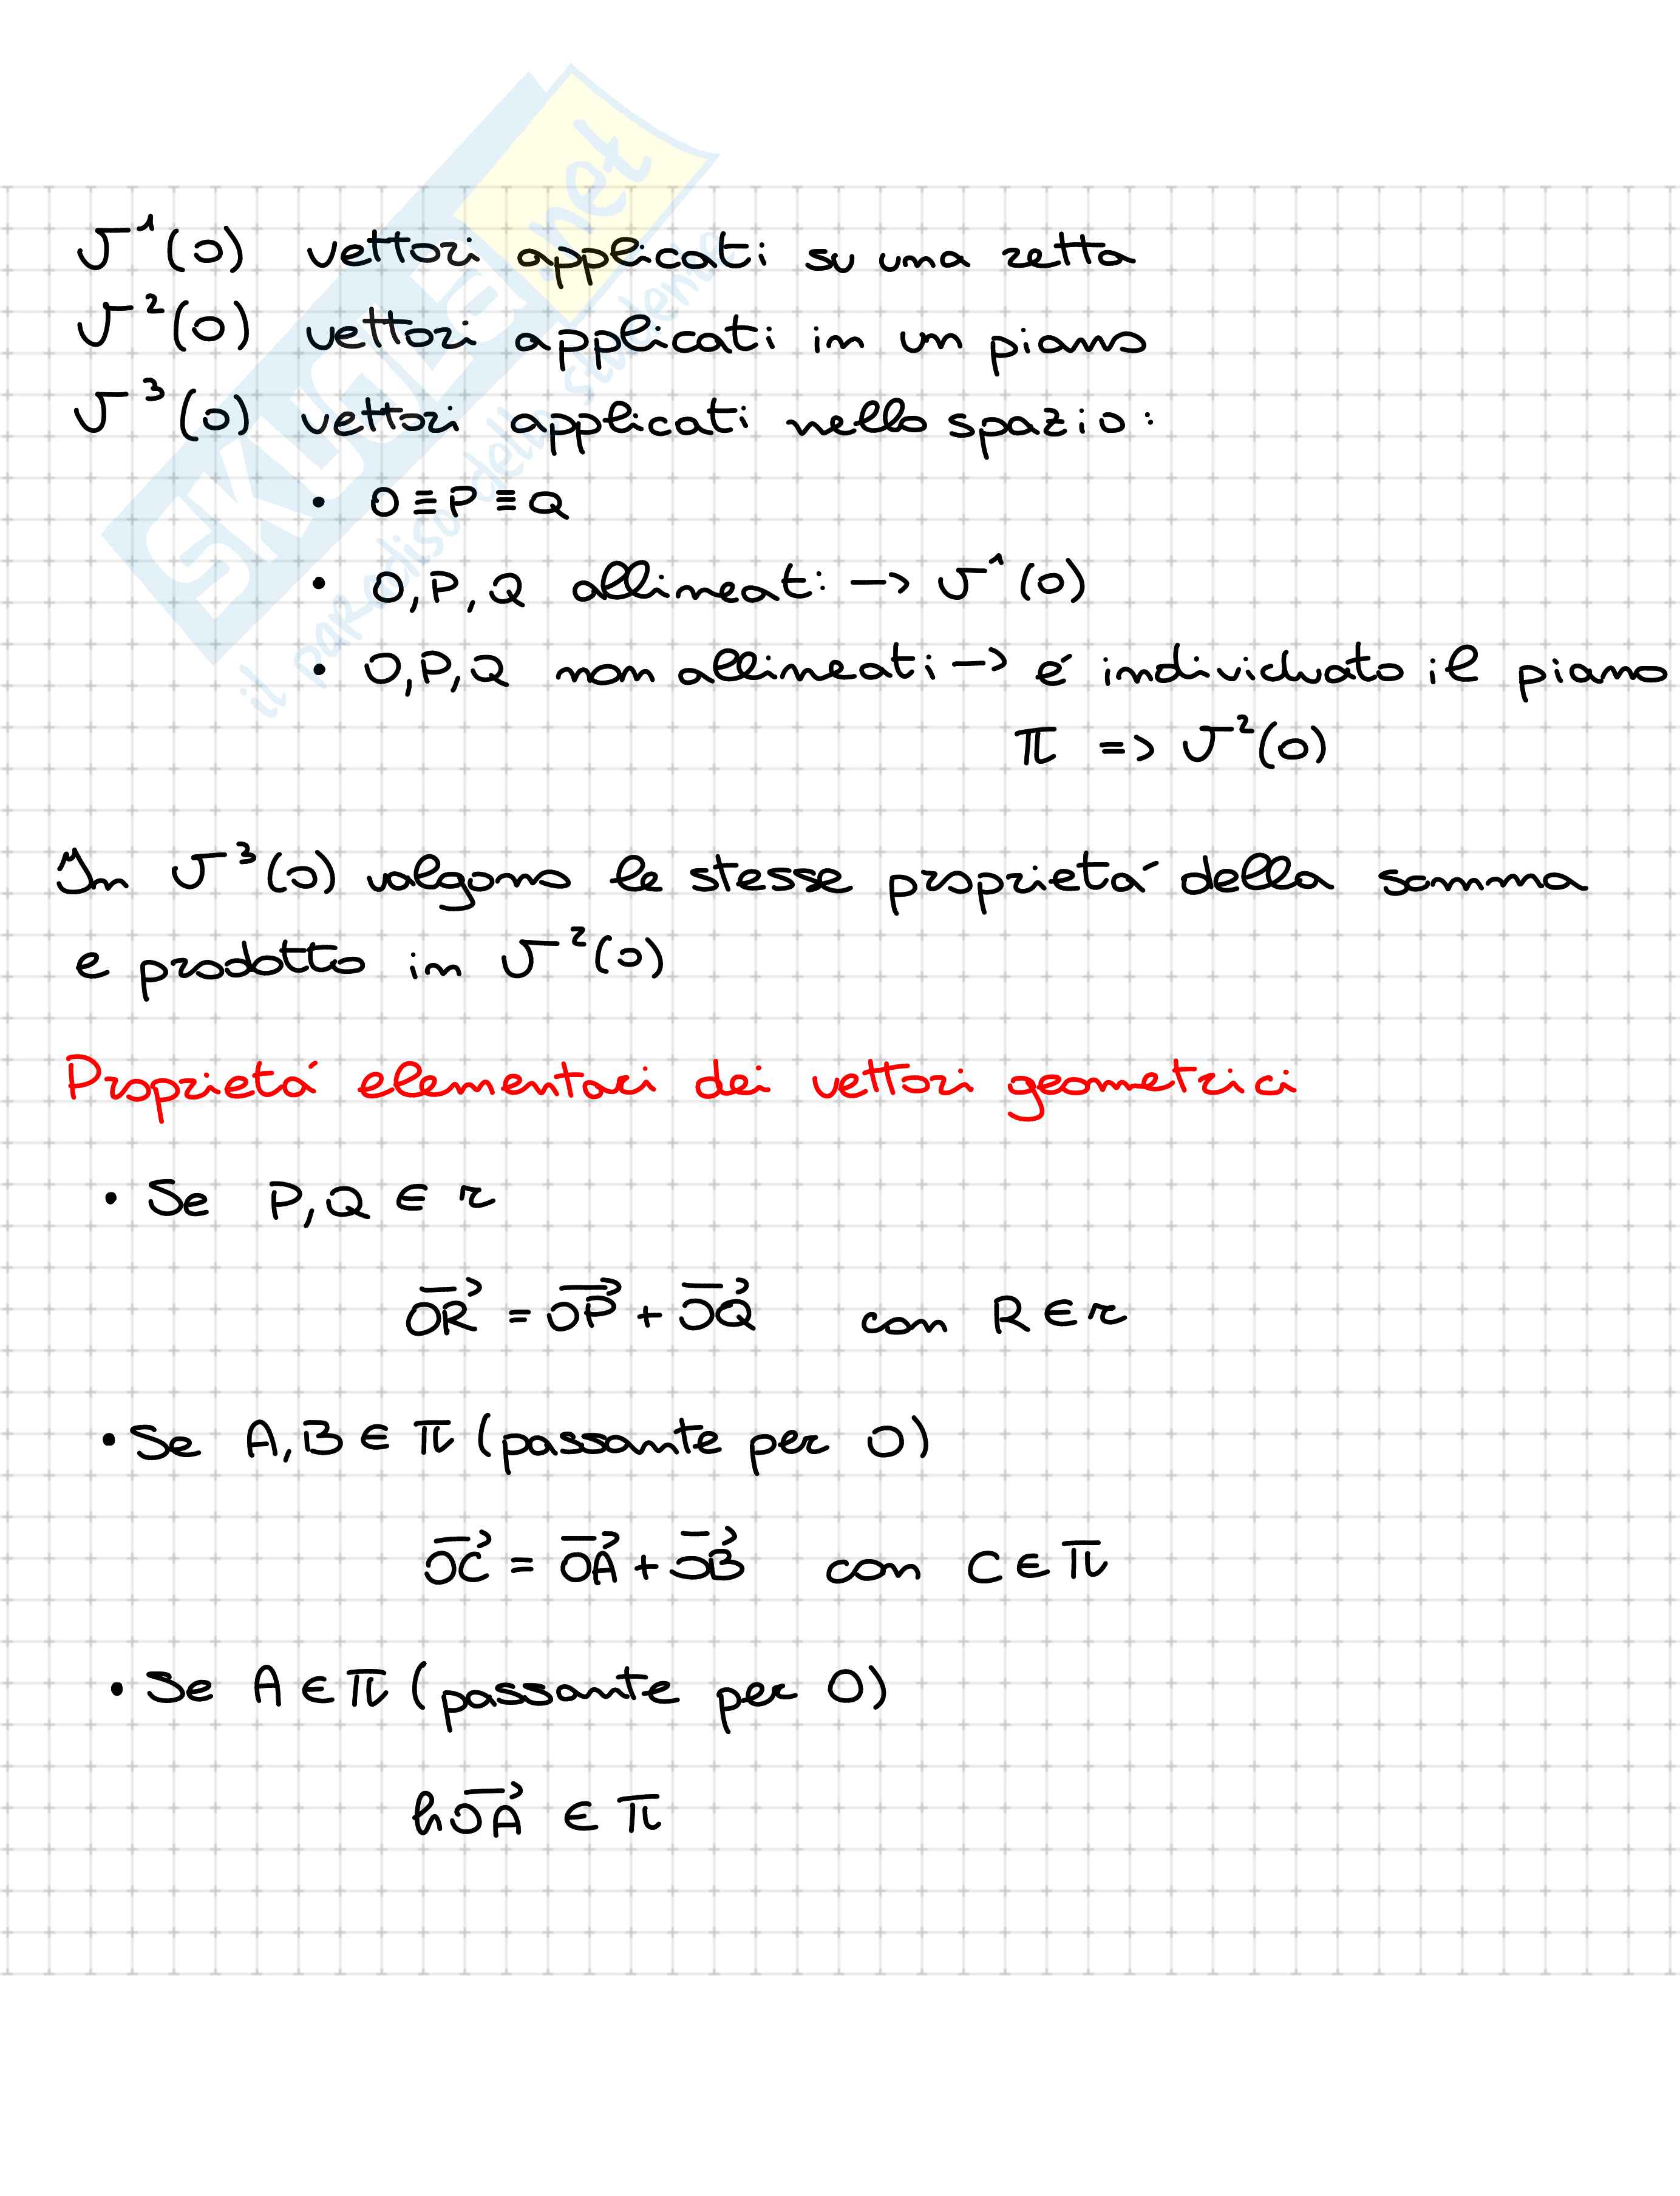 V¹(O) vettori applicati su una retta
V²(O) vettori applicati in un piano
V³(O) vettori applicati nello spazio:
• O ≡ P ≡ Q
• O, P, Q allineati -> V¹(O)
• O, P, Q non allineati -> é individuato il piano
π => V²(O)
In V³(O) valgono le stesse proprietá della somma
e prodotto in V²(O)
Proprietá elementari dei vettori geometrici
• Se P, Q ∈ r
OR⃗ = OP⃗ + OQ⃗ con R ∈ r
• Se A, B ∈ π (passante per O)
OC⃗ = OA⃗ + OB⃗ con C ∈ π
• Se A ∈ π (passante per O)
hOA⃗ ∈ π
SKUOLA.net
il paradiso dello studente